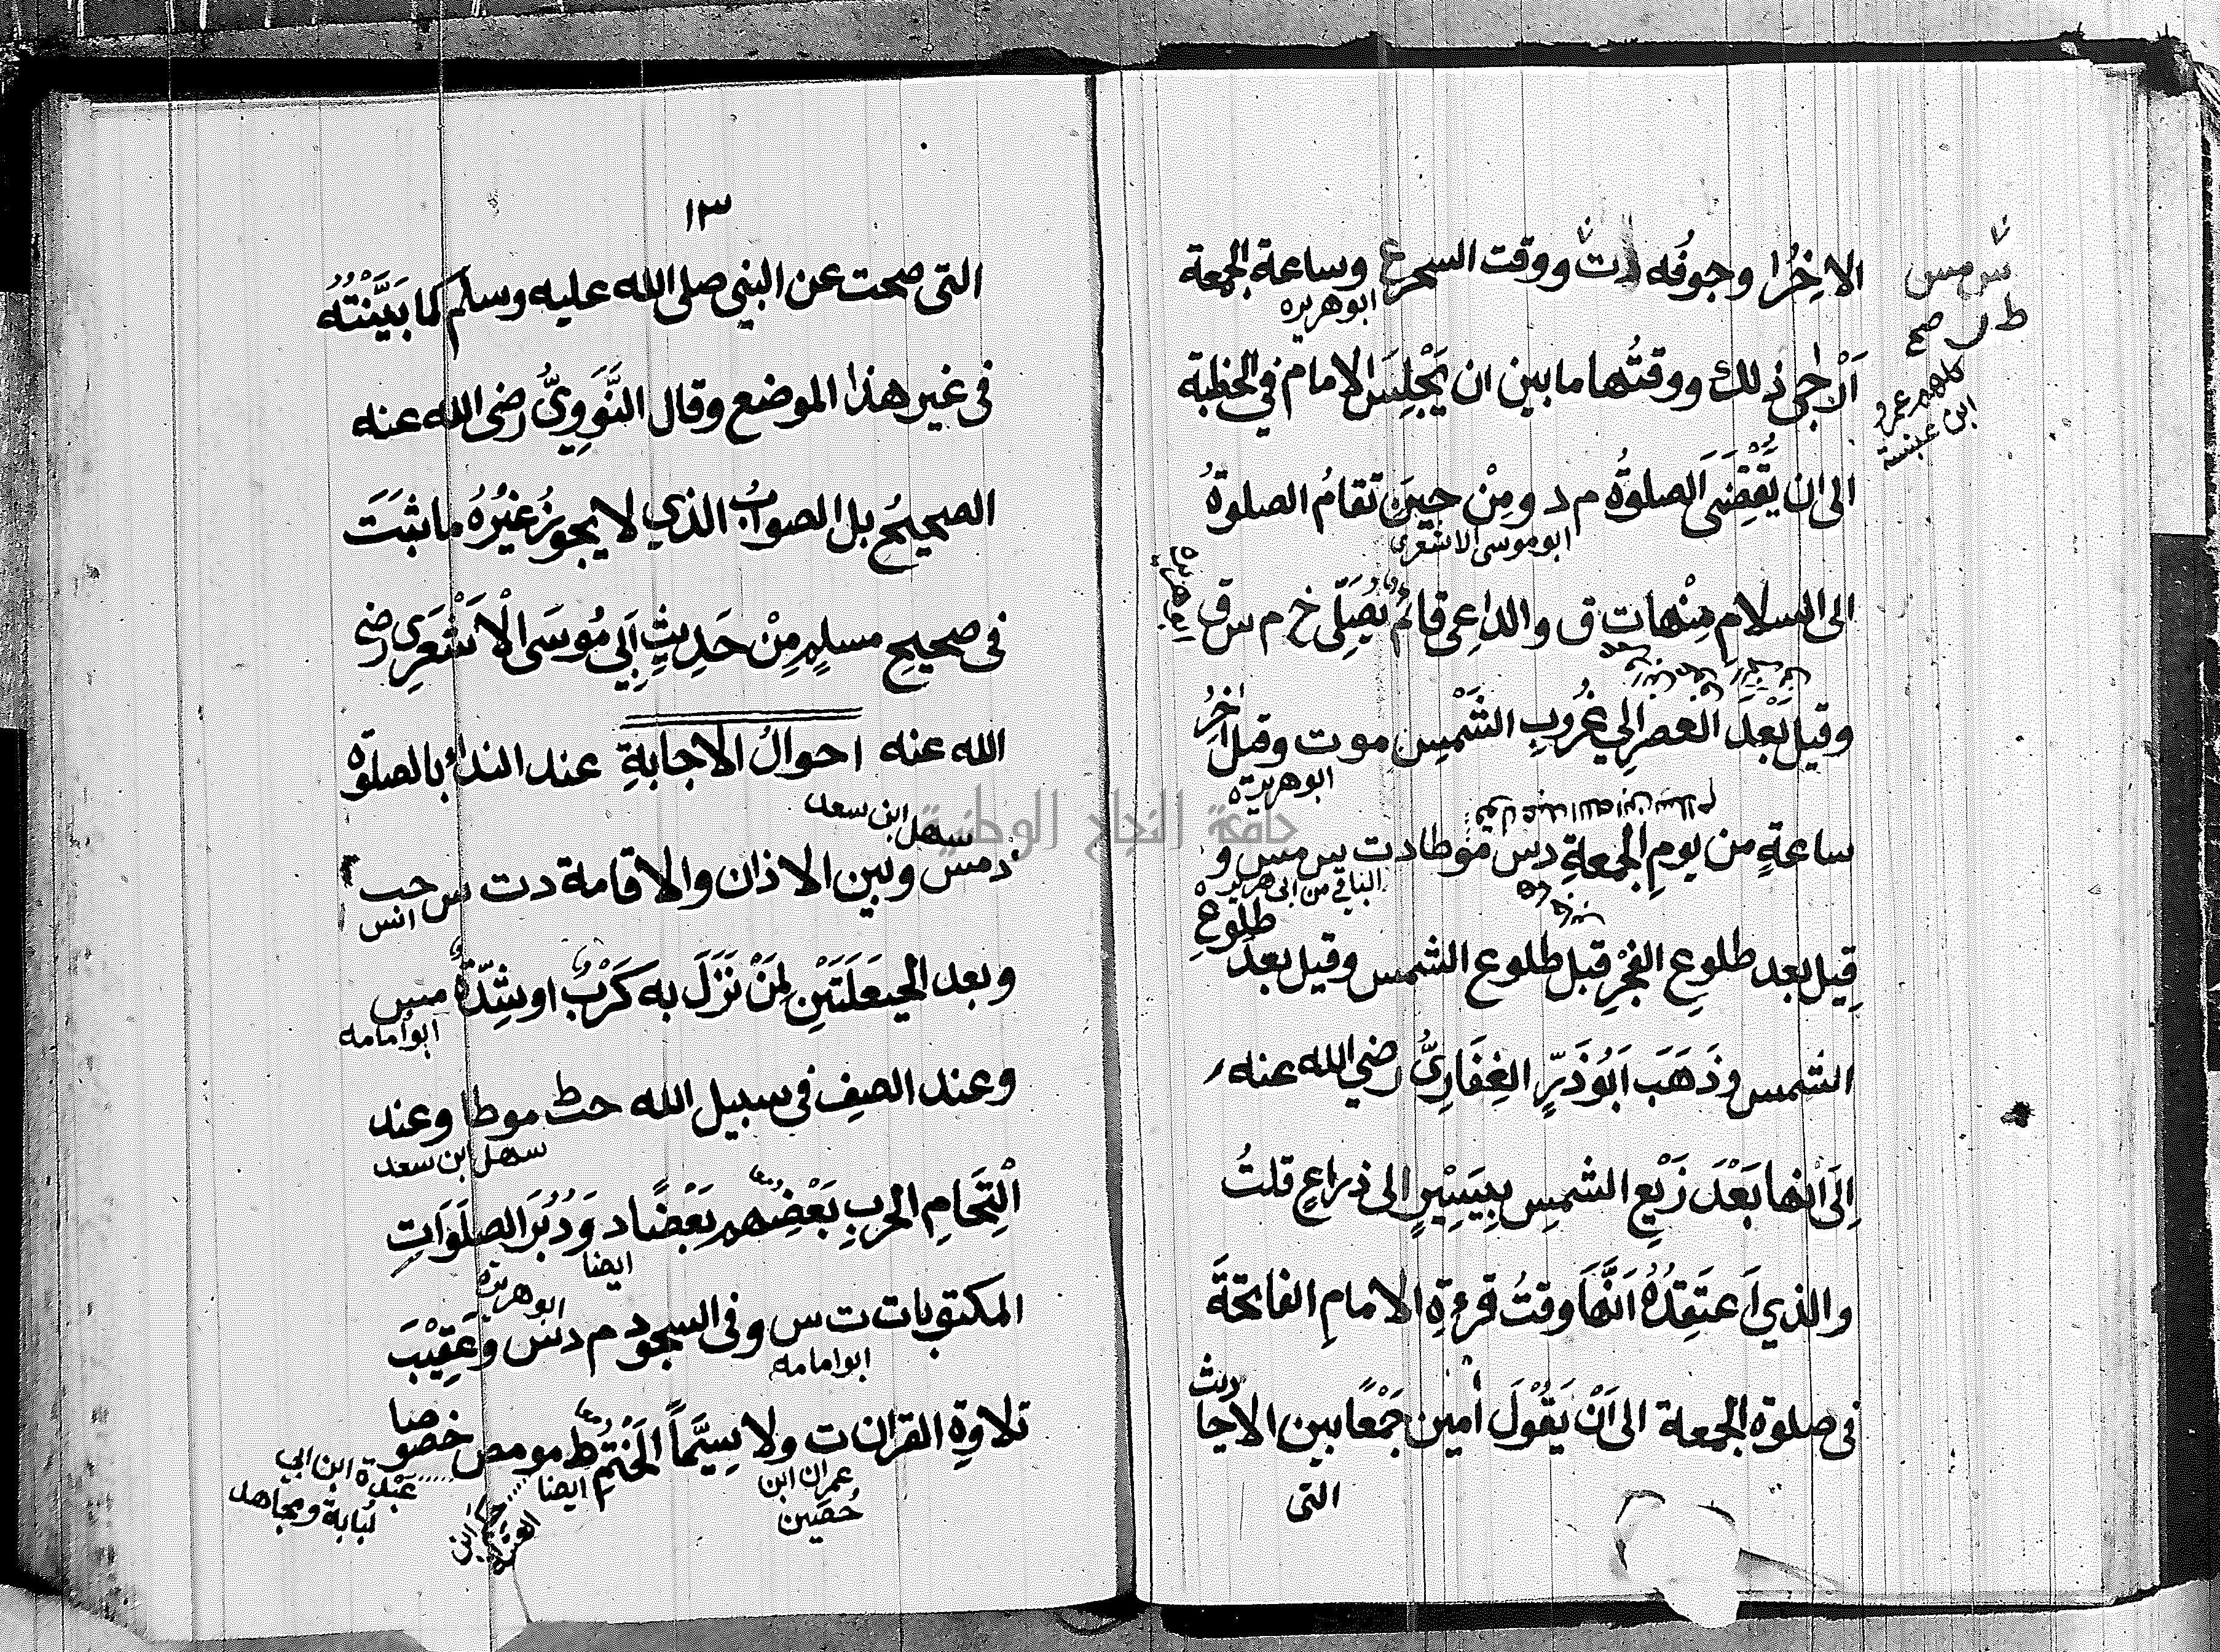 الاخِرُ ا وجوفُه دت ووقت السحر ع وساعة الجمعة
ابوهريره
س مس
ط ر صح
كلهم عمرو
ابن عبسة
اَرْجٰى ذلك ووقتُها ما بين ان يَجْلِسَ الامام في الخطبة
الى ان يُقْضَى الصلوةُ م د ومِنْ حينِ تقامُ الصلوةُ
ابوموسى الاشعرى
الى السلام مِنْها ت ق والداعى قائمٌ يُصَلِّى خ م س ق
ابوهريره
وقيل بَعْدَ العصرِ الي غُروبِ الشَّمْسِ مو ت وقيل آخِرُ
ابوهريرة
ساعةٍ من يومِ الجمعةِ د س موطا د ت س مس و
عبد الله ابن سلام
الباقي من ابى هريرة
قِيل بعد طلوعِ الفَجْرِ قبل طلوع الشمس وقيل بعدَ طلوعِ
الشمس وذَهَبَ اَبُو ذَرٍّ الغِفَارِىُّ رضي الله عنه
اِلَى اَنها بَعْدَ زَيْغِ الشمسِ بِيَسِيْرٍ الى ذراعٍ قلتُ
والذي اَعتَقِدُهُ اَنَّهَا وقتُ قرءةِ الامامِ الفاتحةَ
فى صلوة الجمعة الى اَنْ يَقُوْلَ اٰمين جَمْعًا بين الاحاديث
التى
١٣
التى صحت عن النبي صلى الله عليه وسلم كما بَيَّنْتُهُ
فى غير هذا الموضع وقال النَّوَوِيُّ رضى الله عنه
الصحيحُ بل الصوابُ الذي لا يجوزُ غيْرُهُ ما ثبَتَ
فى صحيحِ مسلمٍ مِنْ حَدِيثِ اَبِي مُوسَى الْاَشْعَرِى رضى
الله عنه احوالُ الاجابةِ عند الندأ بالصلوٰة
سهل ابن سعد
د مس وبين الاذان والاقامة د ت س حب
انس
وبعد الحيعَلَتَيْنِ لِمَنْ نَزَلَ به كَرْبٌ او شِدَّةٌ مس
ابو امامه
وعند الصفِ فى سبيل الله حب ط موطا وعند
سهل ابن سعد
الْتِحَامِ الحربِ بَعْضِهم بَعْضًا د وَدُبُرَ الصلَوَاتِ
ايضا
المكتوبات ت س وفى السجود م د س وعَقِيْبَ
ابو امامه
ابو هريرة
تلاوةِ القران ت ولا سِيَّمَا الخَتْمِ ط مو مص خصوصا
عمران ابن
حُصَين
ايضا
عَبْدة ابن ابي
لبابة ومجاهد
جامعة النجاح الوطنية